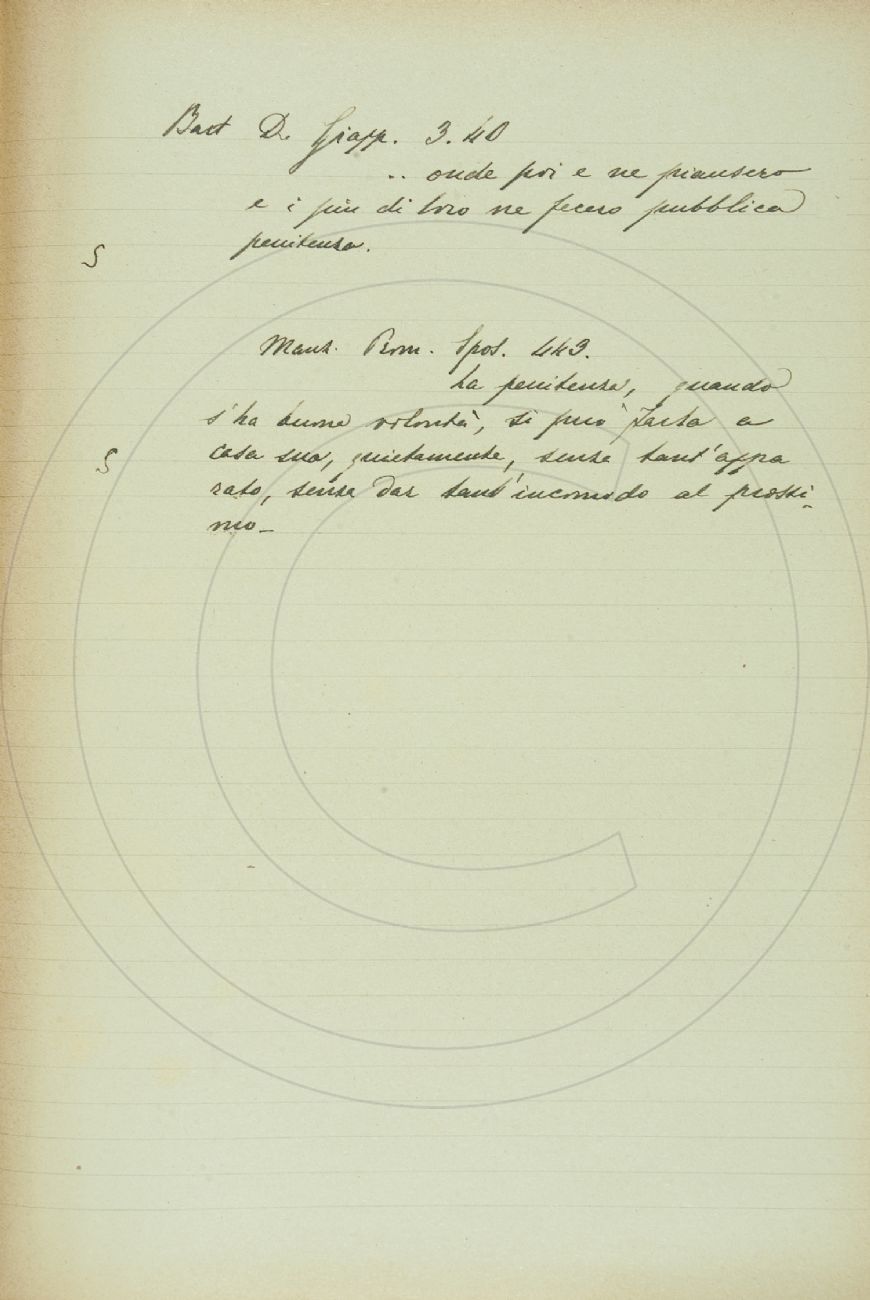 Bart D. Giapp. 3. 40
.. onde poi e ne piansero
e i piu di loro ne fecero pubblica
penitenza.
S
Manz. Prom. Spos. 443.
La penitenza, quando
s'ha buona volontà, si può farla a
S
casa sua, quietamente, senza tant'appa
rato, senza dar tant'incomodo al prossi-
mo_